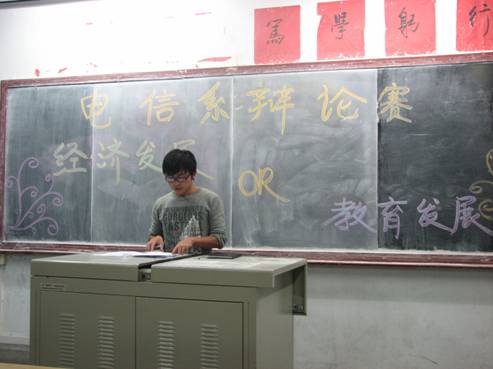 篤 學 躬 行
电信系辩论赛
经济发展
OR
教育发展